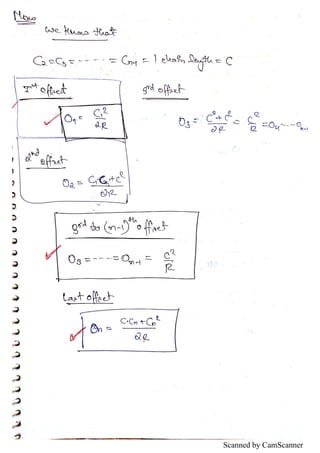 Now
we know that
C₂=C₃= - - - - - = Cₙ₋₁ = 1 chain length = C
1st offset
O₁ = C₁²/2R
3rd offset
O₃ = C²+C²/2R = C²/R = O₄ - - - Oₙ₋₁
2nd offset
O₂ = C₁C+C²/2R
3rd to (n-1)th offset
O₃ = - - - - = Oₙ₋₁ = C²/R
Last offset
Oₙ = C·Cₙ + Cₙ²/2R
Scanned by CamScanner